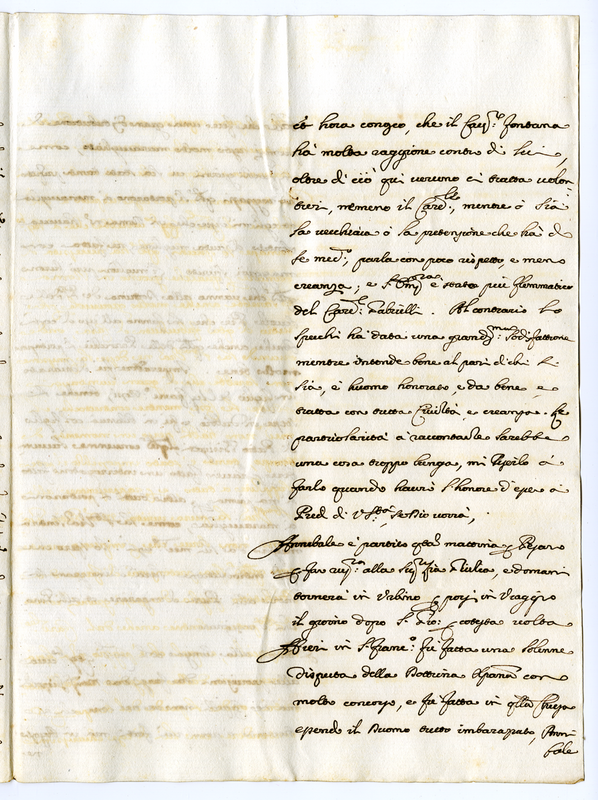 et hora conosco, che il Cav.r Fontana
hà molta raggione contro di lui,
oltre di ciò qui veruno ci tratta volon
tieri, nemeno il Card.le, mentre ò sia
la vecchiaia ò la pretenzione che hà di
se med.o, parla con poco rispetto, e meno
creanza; e è stata più flemmatica
del Card.l Gabrielli. Al contrario lo
Specchi hà data una grandis.ma sodisfattione
mentre intende bene al pari di chi si
sia, è huomo honorato, e da bene, e
tratta con tutta Civiltà, e creanza. Le
particolarità à raccontarle sarebbe
una cosa troppo lunga, mi riserbo à
farlo quando havrò l'honore d'esser a
Piedi di V. S. Se Dio vorrà,
Annibale è partito q.ta mattina p Pesaro
p far alla Sig.ra Zia Giulia, e domani
tornerà in Urbino p porsi in Viaggio
il giorno dopo S. Gio: p cotesta volta
Hieri in S. Franc.o fù fatta una solenne
disputa della Dottrina Xpana con
molto concorso, e fù fatta in q.lla Chiesa
essendo il Duomo tutto imbarazzato, Anni
bale